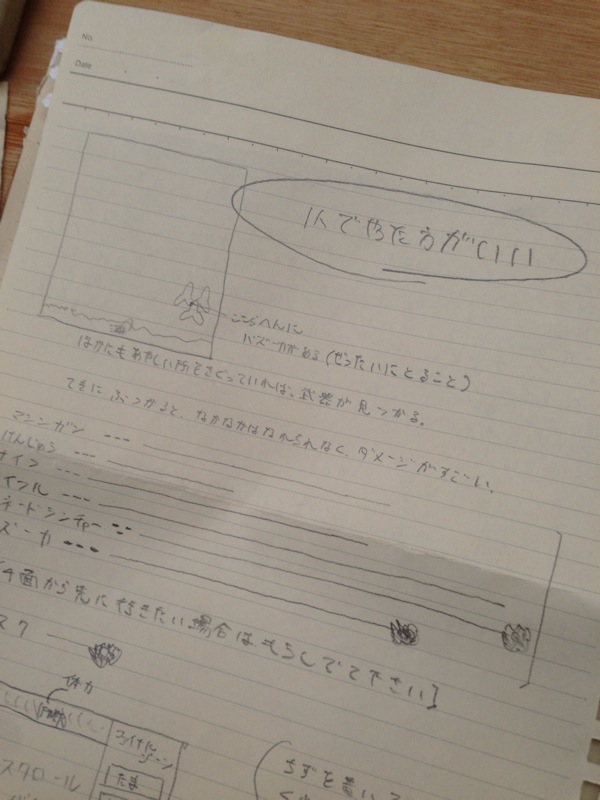 No.
Date
1人でやた方がいい
ここらへんに
バズーカがある(ぜったいにとること)
ほかにもあやしい所をさぐっていれば、武器が見つかる。
てきにぶつかると、なかなかはなれられなく、ダメージがすごい。
マシンガン ---
けんじゅう ---
---
イフル ---
ネードランチャー ---
ズーカ ---
4面から先に行きたい場合はもらしでて下さい]
スク
体力
たま
スクロール
ちずを書いて